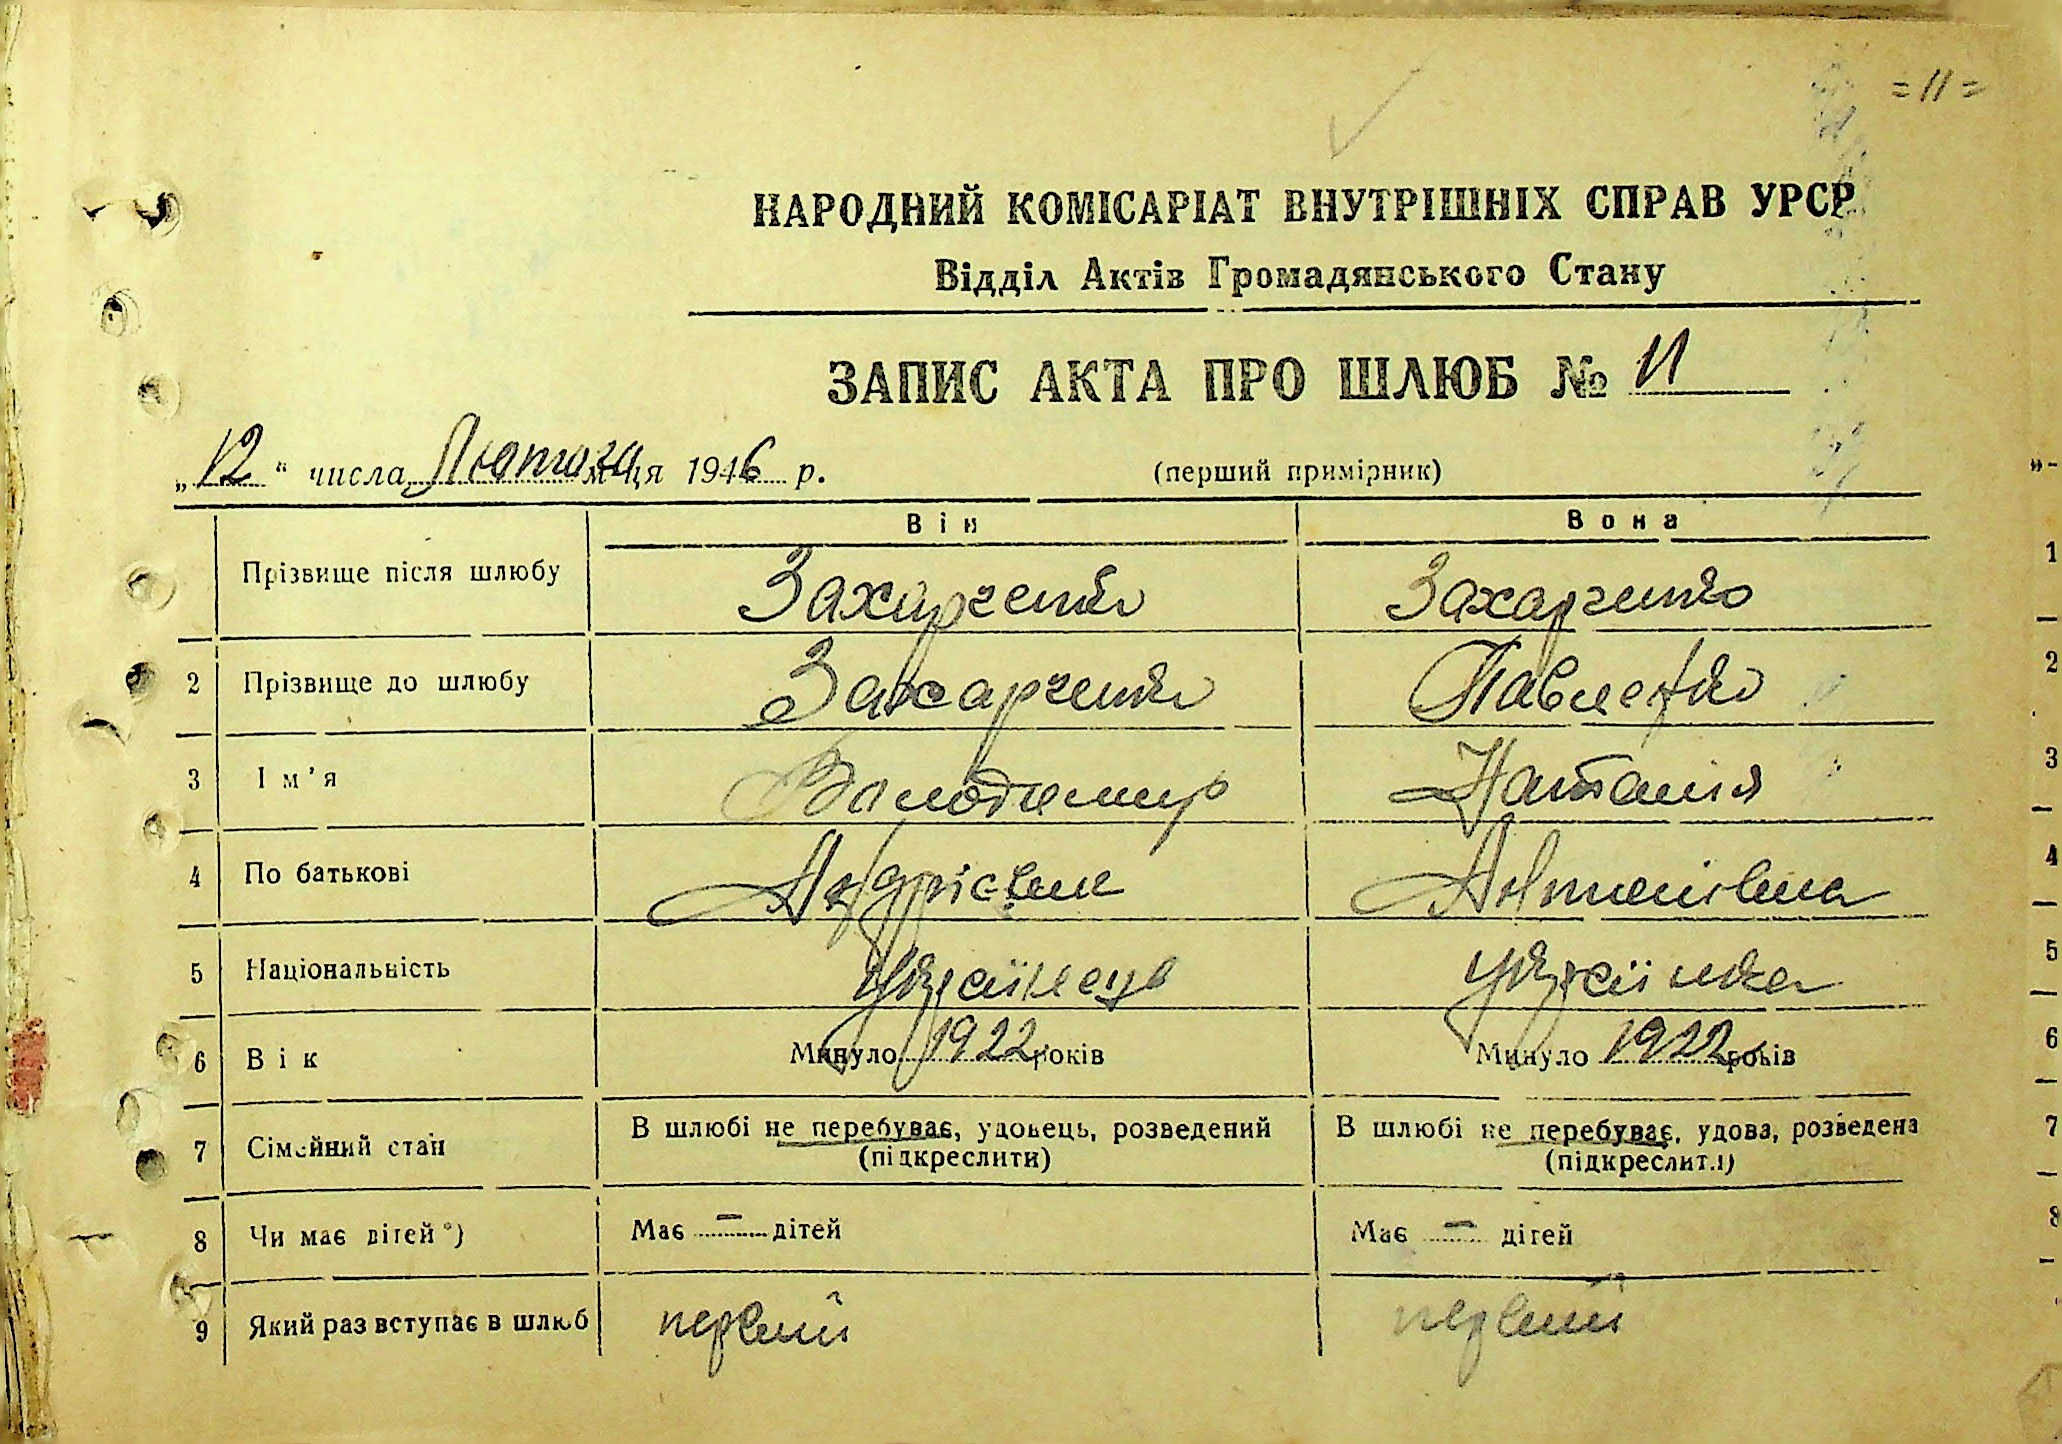 = 11 =
НАРОДНИЙ КОМІСАРІАТ ВНУТРІШНІХ СПРАВ УРСР
Відділ Актів Громадянського Стану
ЗАПИС АКТА ПРО ШЛЮБ № 11
„12“ числа Лютого м-ця 1946 р. (перший примірник)
Він Вона
Прізвище після шлюбу Захарченко Захарченко
2 Прізвище до шлюбу Захарченко
3 Ім'я Володимир Наталія
4 По батькові Андрієвич
5 Національність Українець Українка
6 Вік Минуло 1922 років Минуло 1922 років
7 Сімейний стан В шлюбі не перебуває, удовець, розведений (підкреслити) В шлюбі не перебуває, удова, розведена (підкреслити)
8 Чи має дітей *) Має — дітей Має — дітей
9 Який раз вступає в шлюб первий первий
1
2
3
4
5
6
7
8